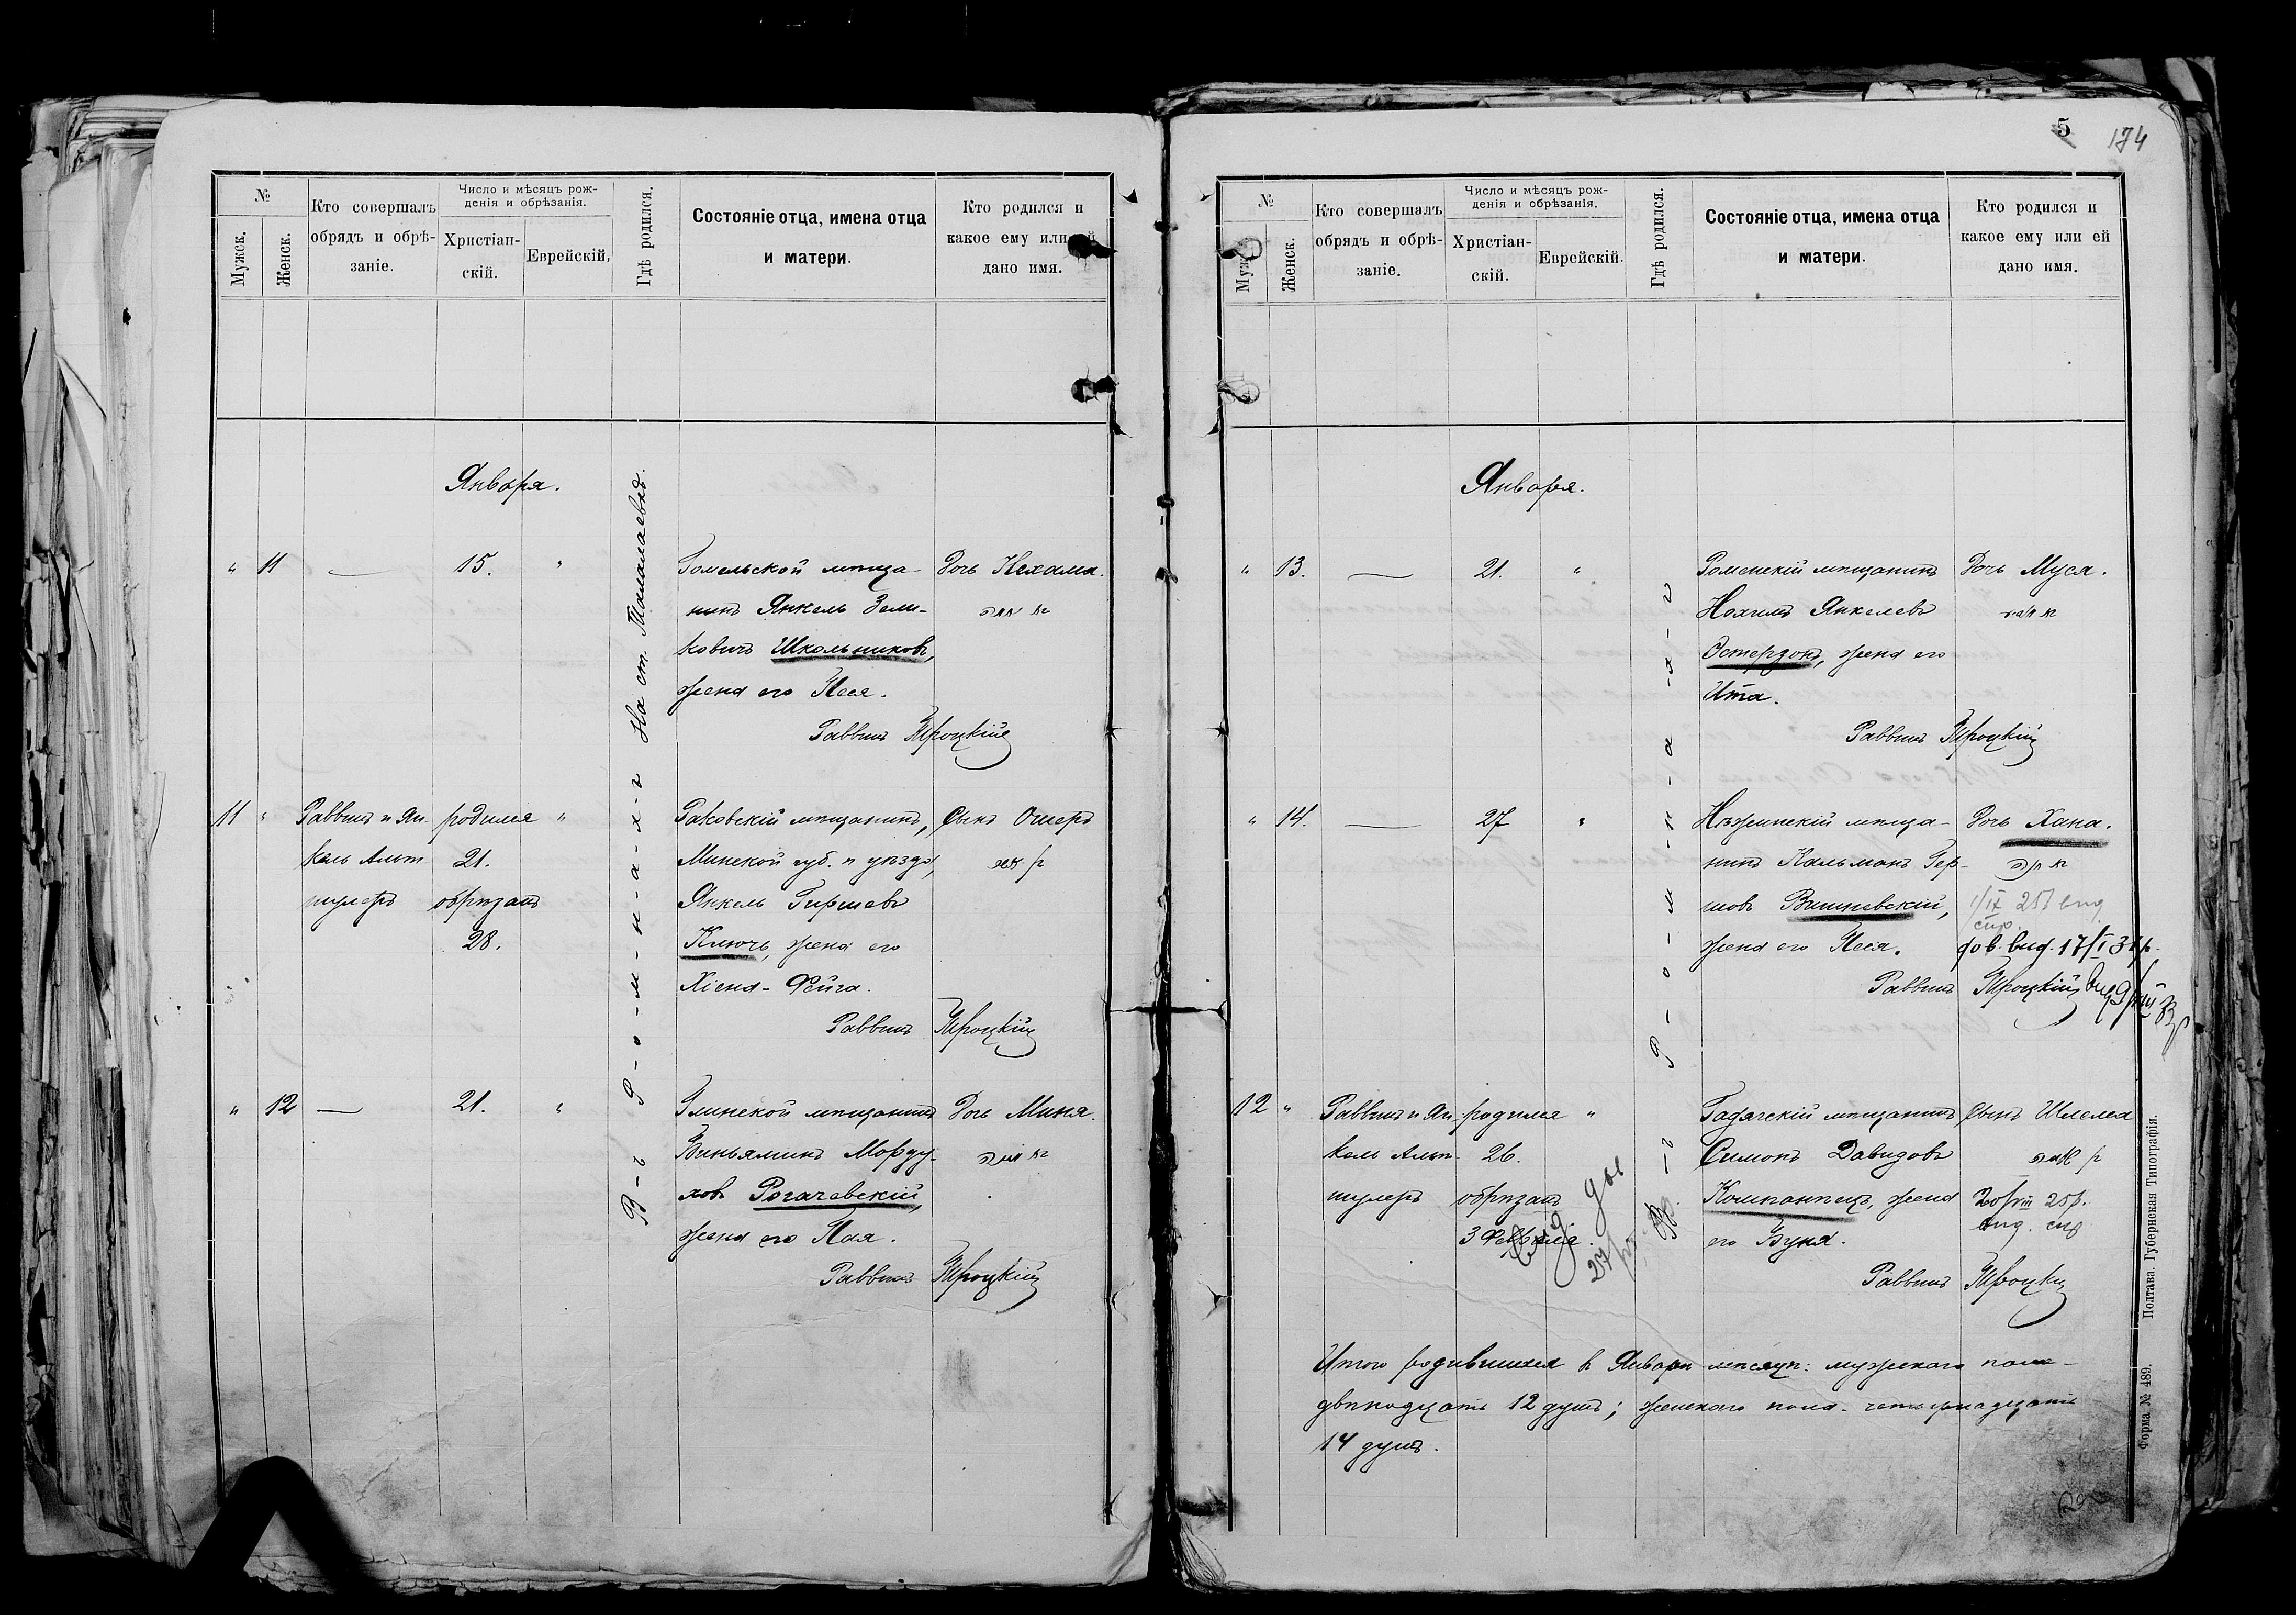 №
Мужск.
Женск.
Кто совершалъ
обрядъ и обрѣ-
заніе.
Число и мѣсяцъ рож-
денія и обрѣзанія.
Христіан-
скій.
Еврейскій,
Гдѣ родился.
Состояніе отца, имена отца
и матери.
Кто родился и
какое ему или
дано имя.
Января.
На ст. Талалаевкѣ.
В-ъ Р-о-м-н-а-х-ъ
" 11 — 15. "
Гомельской мѣща-
нинъ Янкель Зели-
ковичъ Школьниковъ,
жена его Песя.
Дочь Нехама.
Раввинъ Троцкій
11 " Раввинъ и Ян-
кель Альт
шулеръ
родился "
21.
обрѣзанъ
28.
Раковскій мѣщанинъ,
Минской губ. и уѣзда,
Янкель Гиршевъ
Ключъ, жена его
Хіена-Фейга.
Сынъ Ошеръ
Раввинъ Троцкій
" 12 — 21. "
Глинской мѣщанинъ
Виньяминъ Морду-
ховъ Рогачевскій,
жена его Пая.
Дочь Миня.
Раввинъ Троцкій
5
174
№
Женск.
Кто совершалъ
обрядъ и обрѣ-
заніе.
Число и мѣсяцъ рож-
денія и обрѣзанія.
Христіан-
скій.
Еврейскій.
Гдѣ родился.
Состояніе отца, имена отца
и матери.
Кто родился и
какое ему или ей
дано имя.
Января.
" 13. — 21. "
Роменскій мѣщанинъ
Нохимъ Янкелевъ
Остерзонъ, жена его
Ита.
Дочь Муся.
Раввинъ Троцкій
" 14. — 27 "
Нѣжинскій мѣща-
нинъ Кальманъ Гер-
шовъ Вишневскій,
жена его Песя.
Дочь Хана.
Раввинъ Троцкій
12 " Раввинъ и Ян-
кель Альт-
шулеръ
родился "
26.
обрѣзанъ
3 Февраля.
Гадячскій мѣщанинъ
Симонъ Давидовъ
Компанѣецъ, жена
его Буня.
Сынъ Шлема
Раввинъ Троцкій
Итого родившихся въ Январѣ мѣсяцѣ: мужескаго пола-
двѣнадцать 12 душъ; женскаго пола- четырнадцать
14 душъ.
Форма № 489. Полтава. Губернская Типографія.